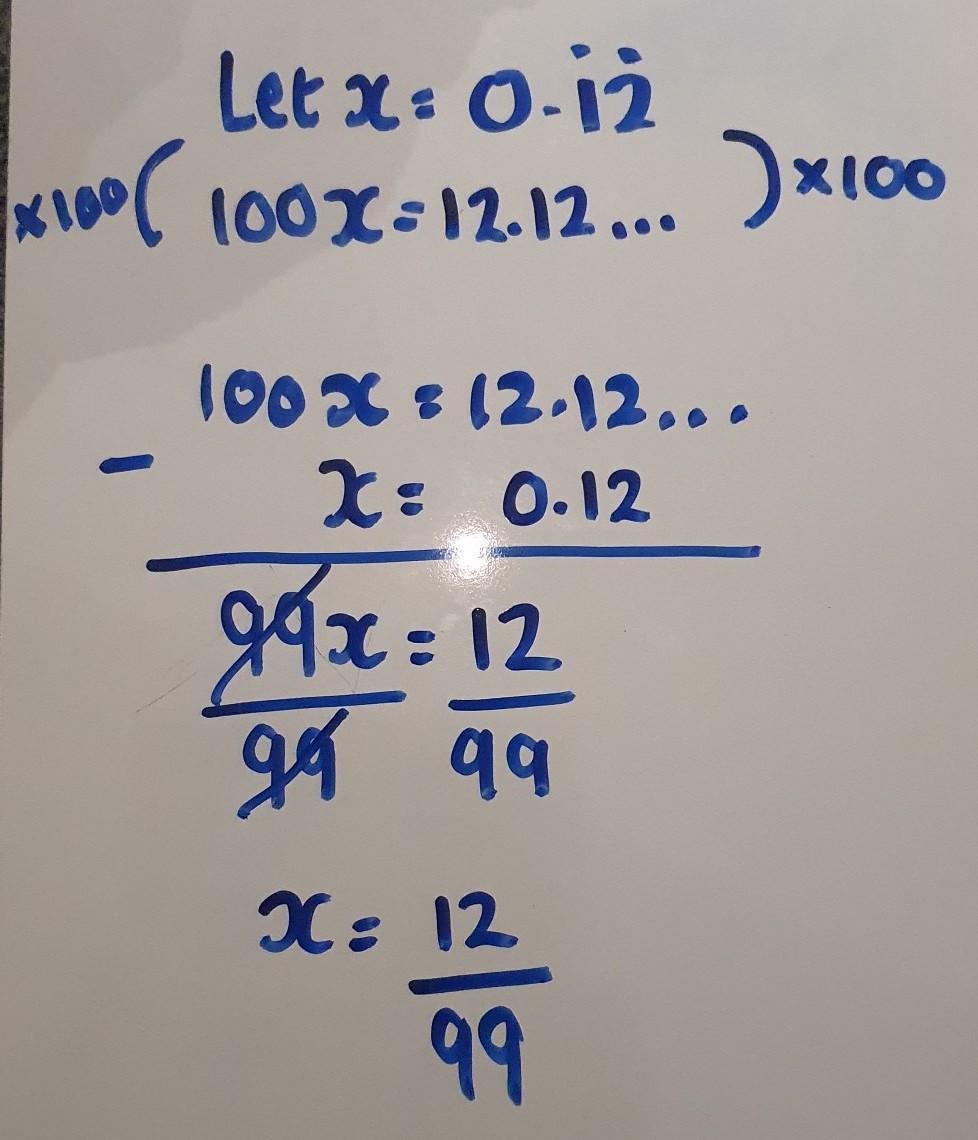 Let x = 0.1̇2̇
×100 ( 100x = 12.12... ) ×100
100x = 12.12...
- x = 0.12
99x = 12
99 99
x = 12
99